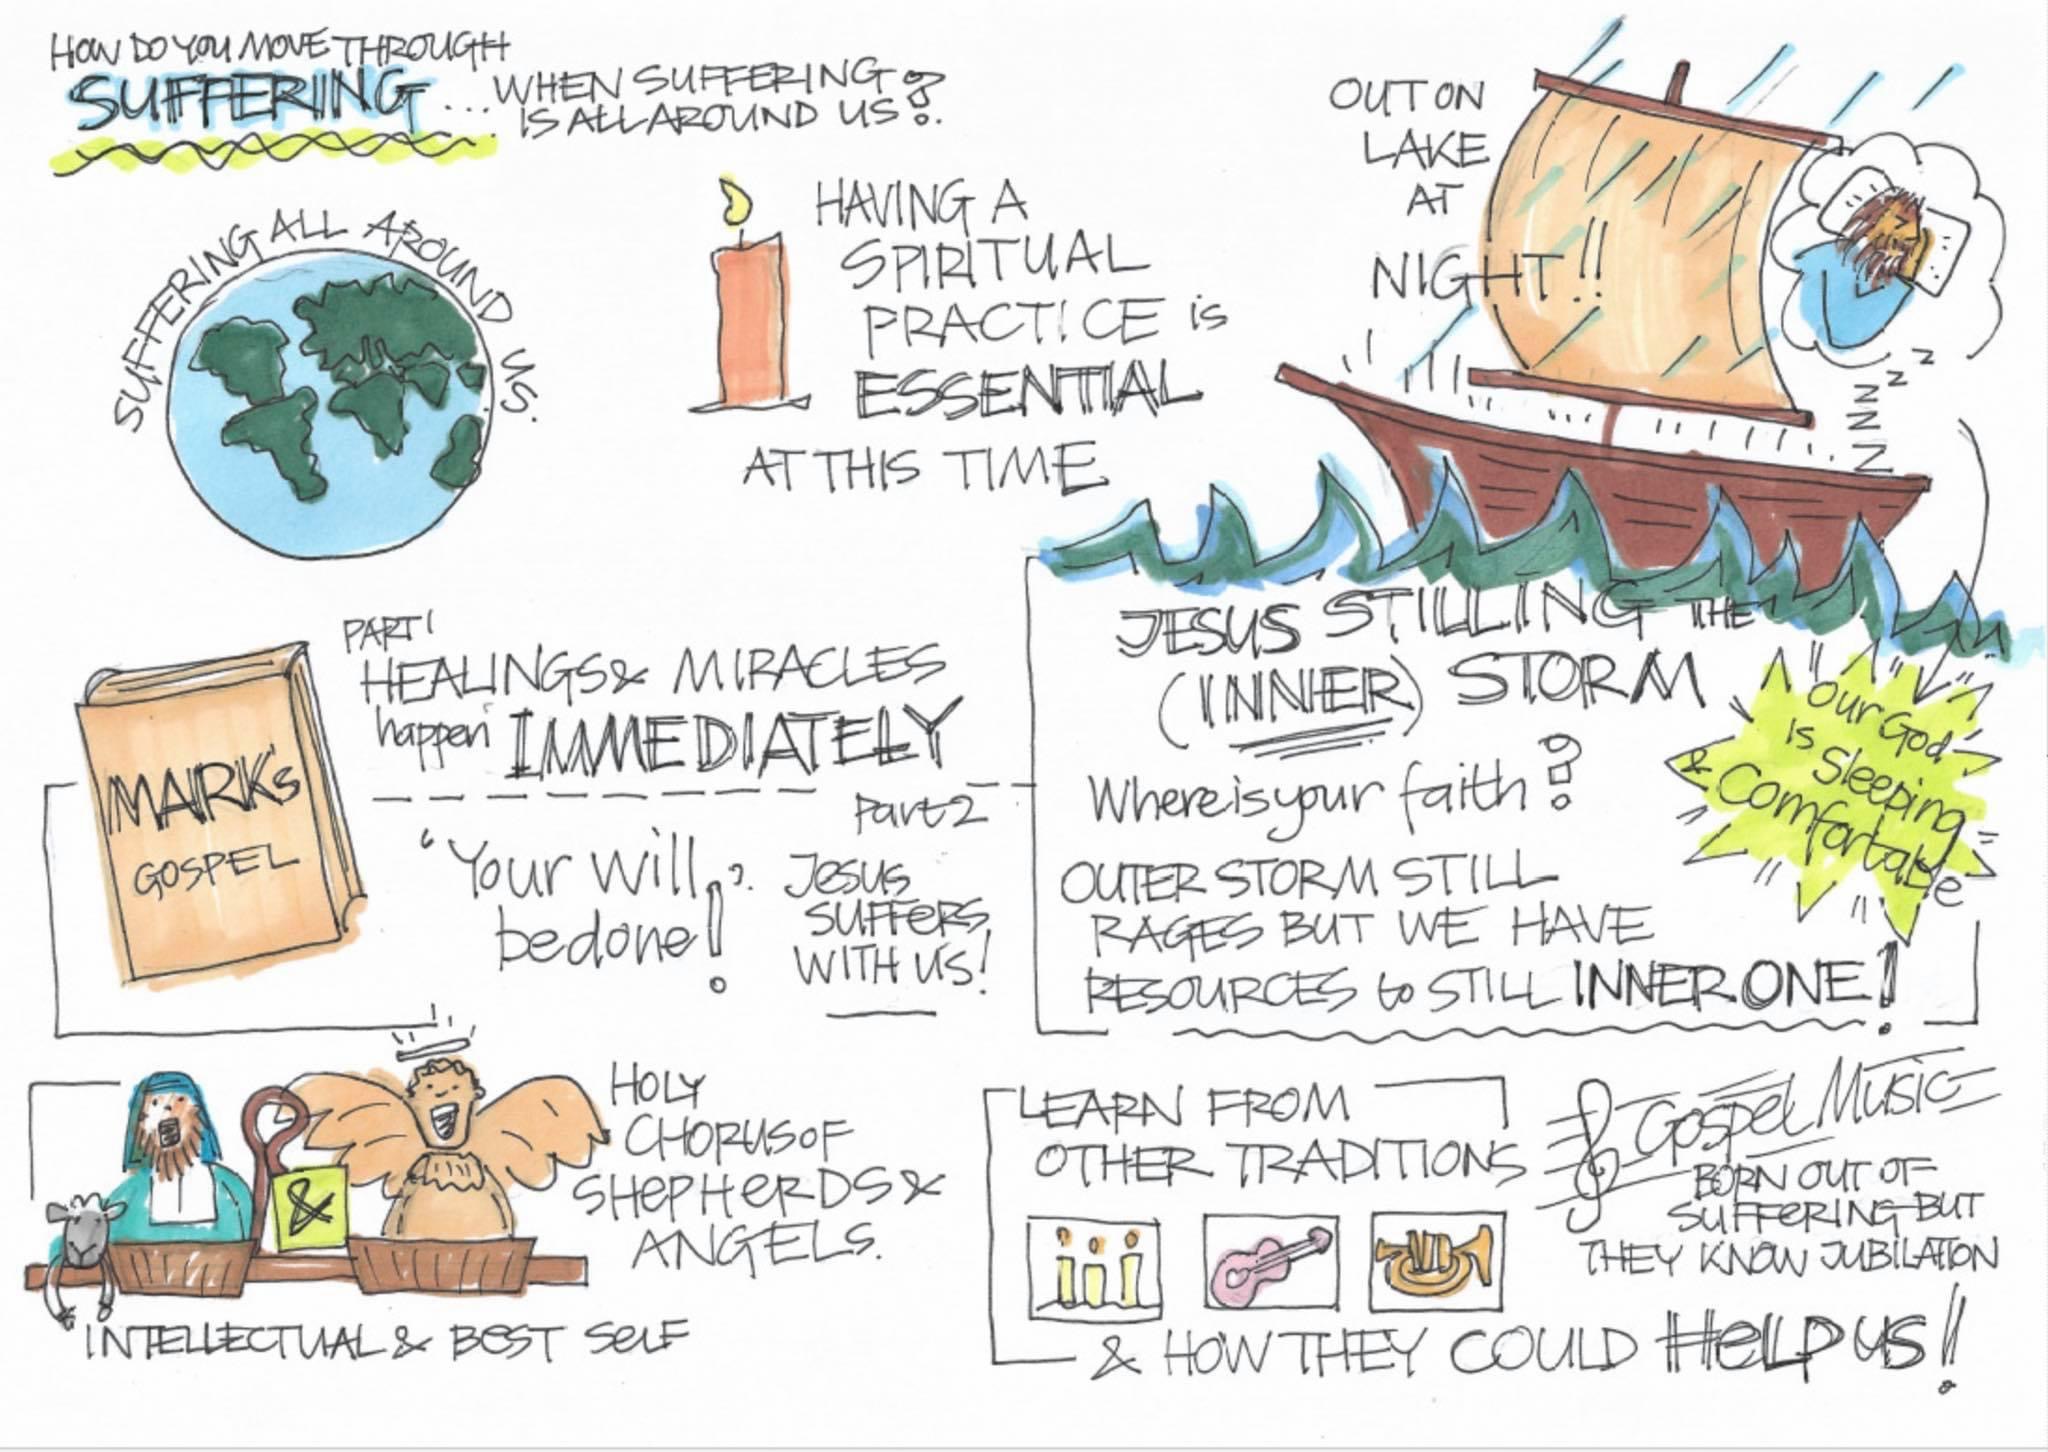 HOW DO YOU MOVE THROUGH
SUFFERING ... WHEN SUFFERING
IS ALL AROUND US?
SUFFERING ALL AROUND US.
HAVING A
SPIRITUAL
PRACTICE is
ESSENTIAL
AT THIS TIME
OUT ON
LAKE
AT
NIGHT!!
Z Z Z Z Z Z
MARK's
GOSPEL
PART 1
HEALINGS & MIRACLES
happen IMMEDIATELY
Part 2
'Your will
be done!'
JESUS
SUFFERS
WITH US!
JESUS STILLING THE
(INNER) STORM
Where is your faith?
OUTER STORM STILL
RAGES BUT WE HAVE
RESOURCES to STILL INNER ONE!
Our God
is Sleeping
& Comfortable
&
HOLY
CHORUS OF
SHEPHERDS &
ANGELS.
INTELLECTUAL & BEST SELF
LEARN FROM
OTHER TRADITIONS
& HOW THEY COULD HELP US!
Gospel Music
BORN OUT OF
SUFFERING BUT
THEY KNOW JUBILATION